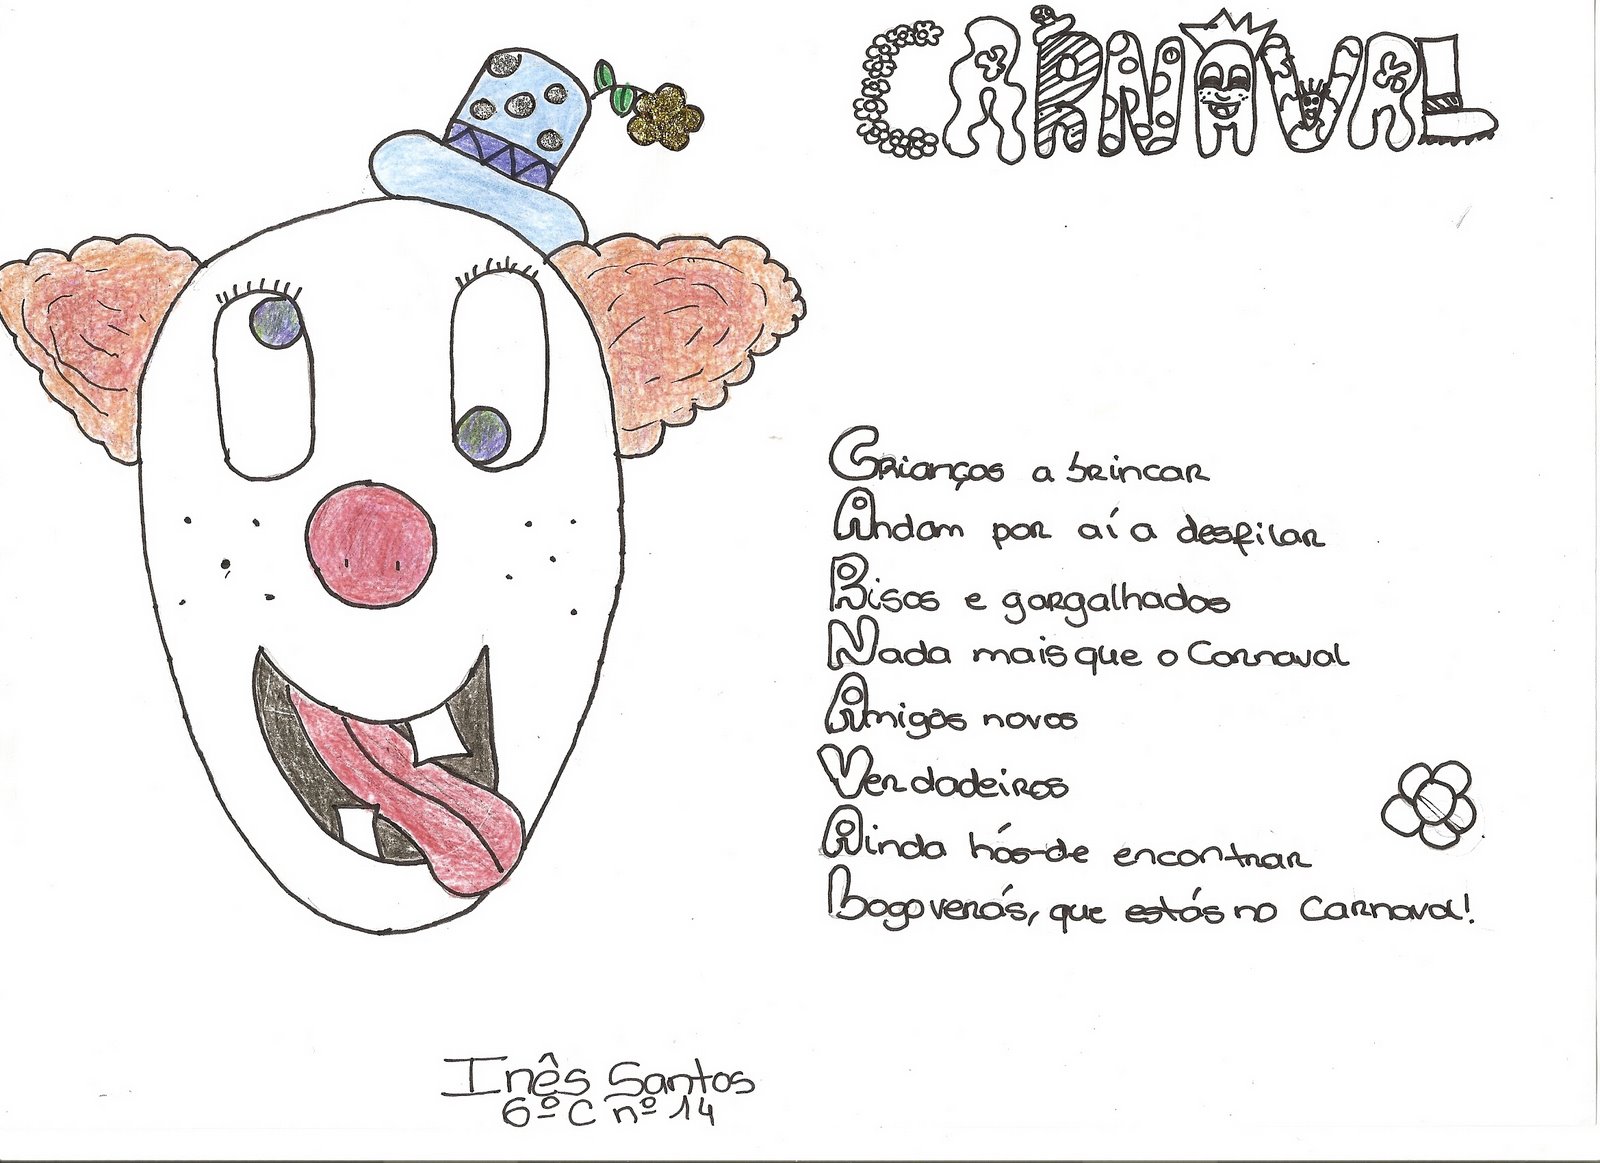 CARNAVAL
Crianças a brincar
Andam por aí a desfilar
Risos e gargalhadas
Nada mais que o Carnaval
Amigos novos
Verdadeiros
Ainda hás-de encontrar
Logo verás, que estás no Carnaval!
Inês Santos
6º C nº 14